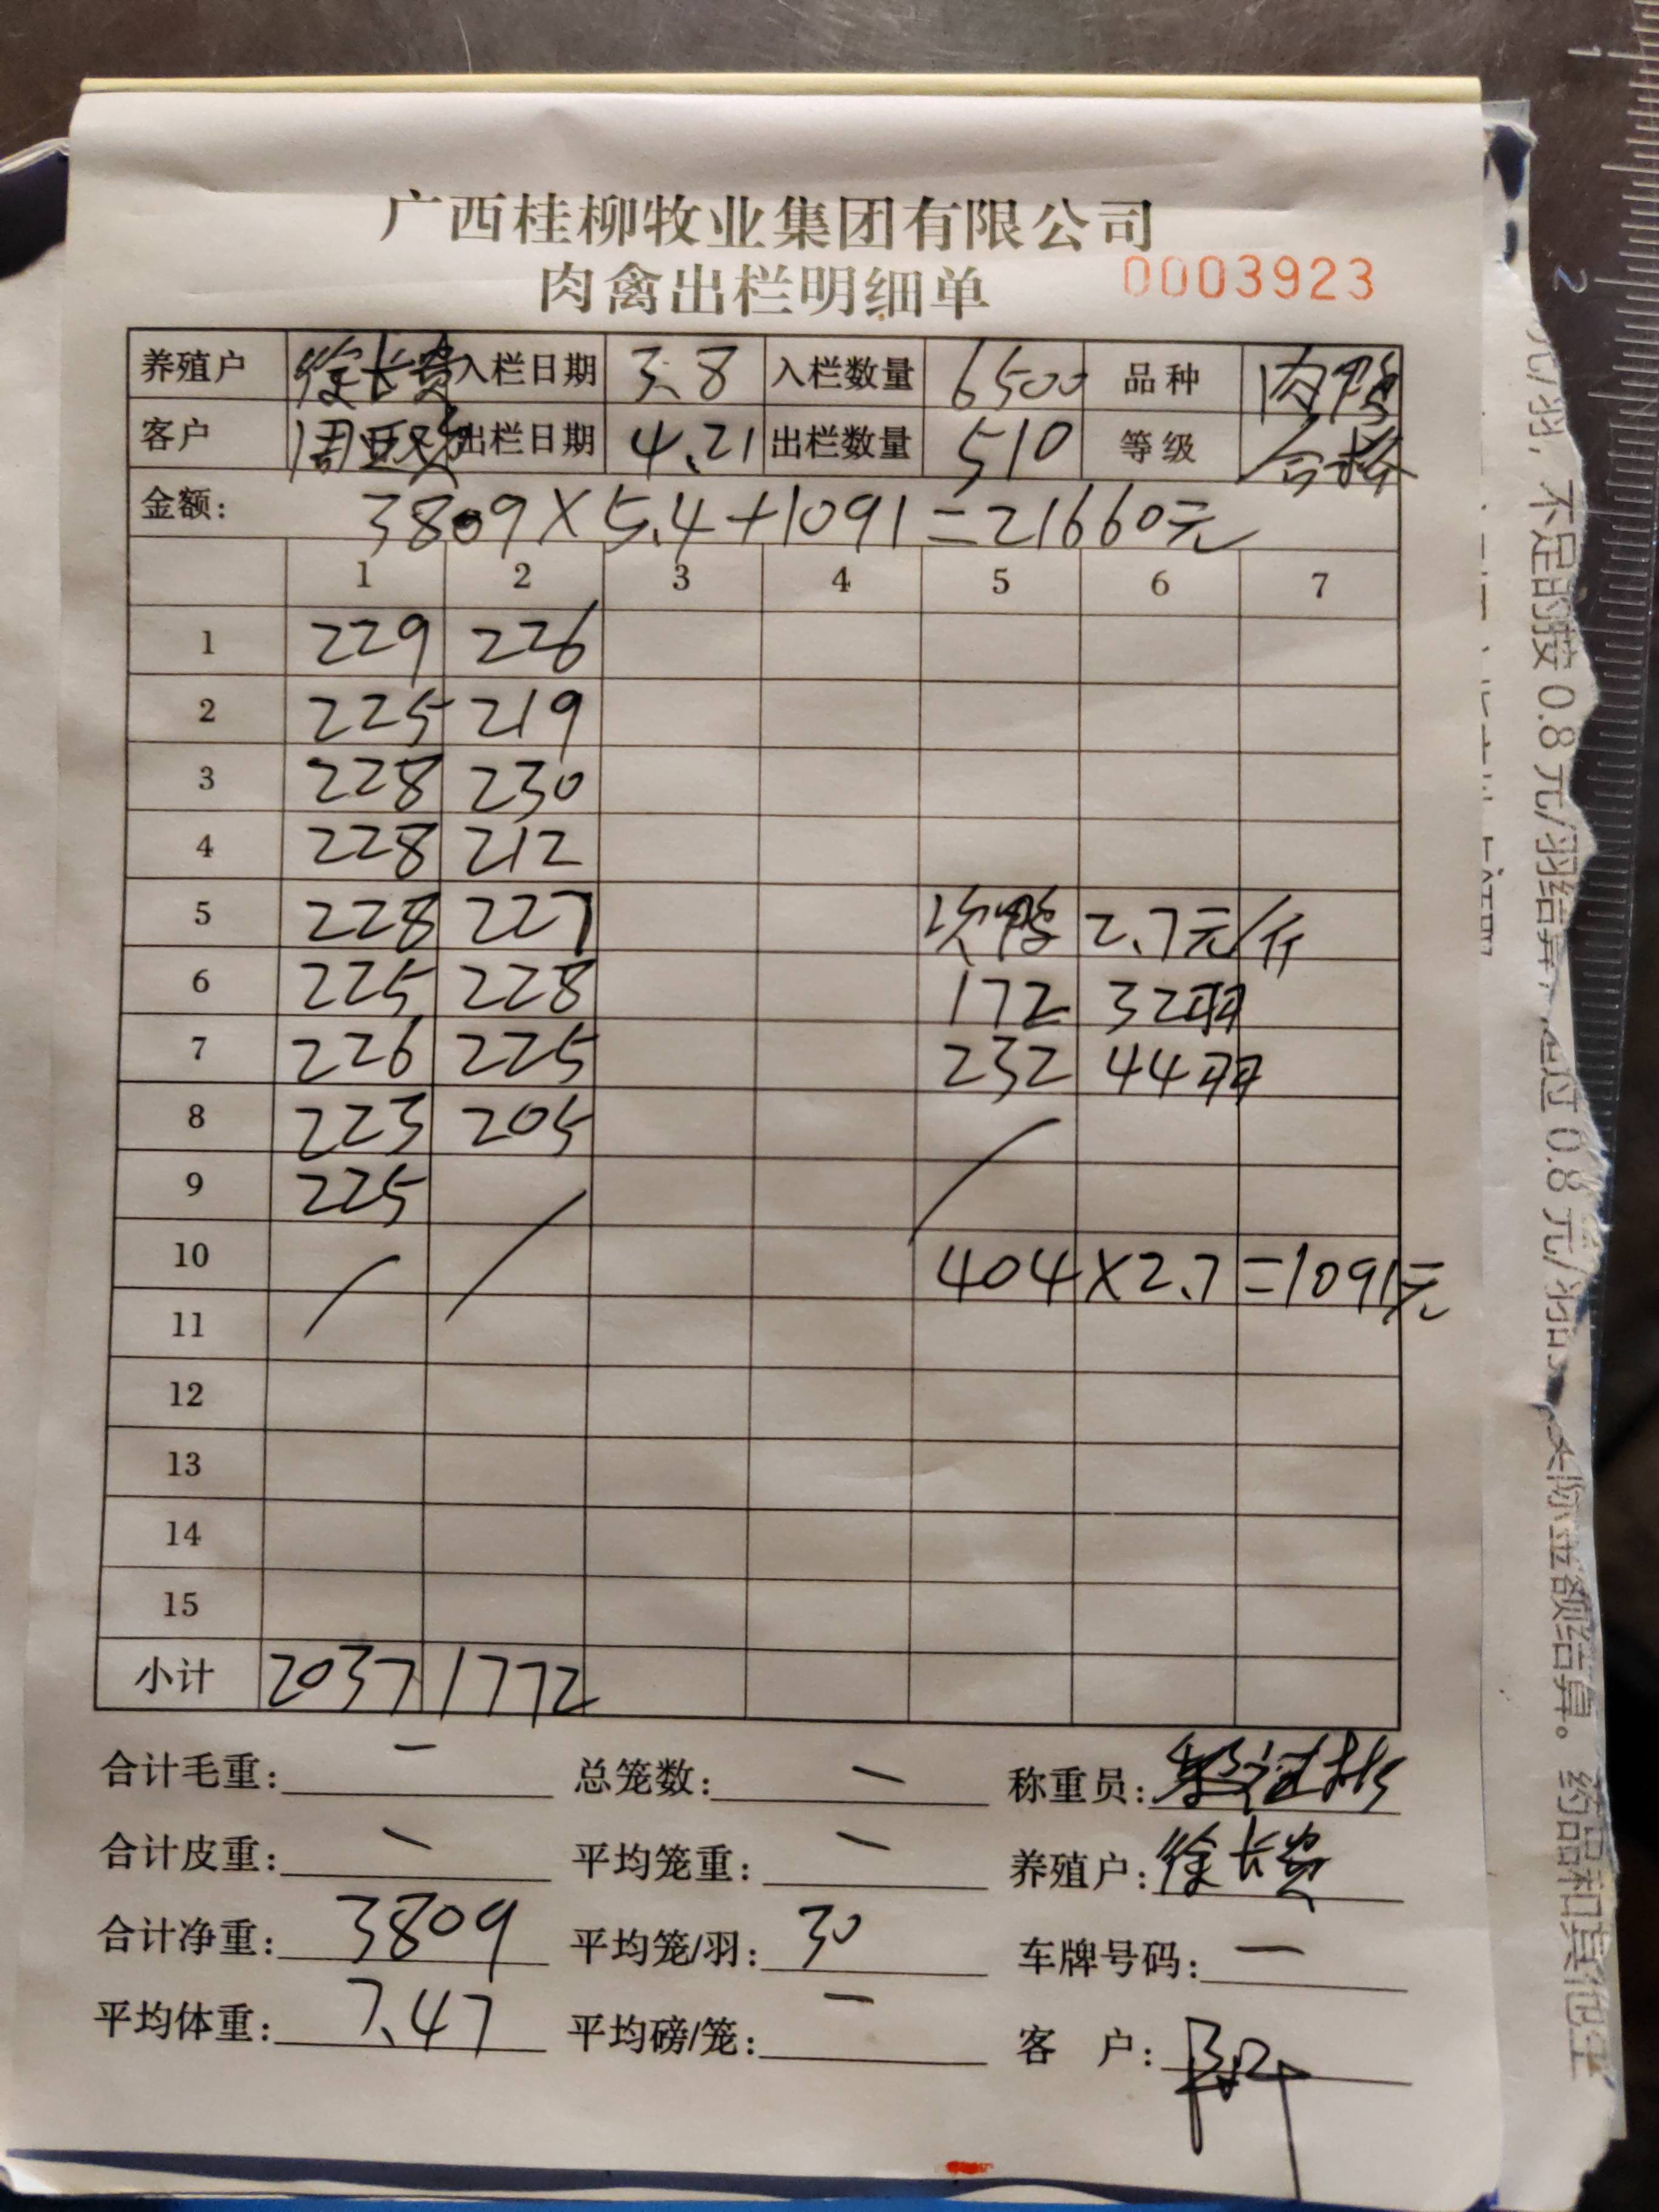 广西桂柳牧业集团有限公司
肉禽出栏明细单 0003923
养殖户 徐长贵 入栏日期 3.8 入栏数量 6500 品种 肉鸭
客户 出栏日期 4.21 出栏数量 510 等级 合格
金额: 3809×5.4+1091=21660元
1 2 3 4 5 6 7
1 229 226
2 225 219
3 228 230
4 228 212
5 228 227 次鸭 2.7元/斤
6 225 228 172 32羽
7 226 225 232 44羽
8 223 205
9 225
10 404×2.7=1091元
11
12
13
14
15
小计 2037 1772
合计毛重: — 总笼数: — 称重员:
合计皮重: — 平均笼重: — 养殖户: 徐长贵
合计净重: 3809 平均笼/羽: 30 车牌号码: —
平均体重: 7.47 平均磅/笼: — 客 户:
元/羽,不足的按 0.8 元/羽结算,超过 0.8 元/羽
实际金额结算。药品和其他